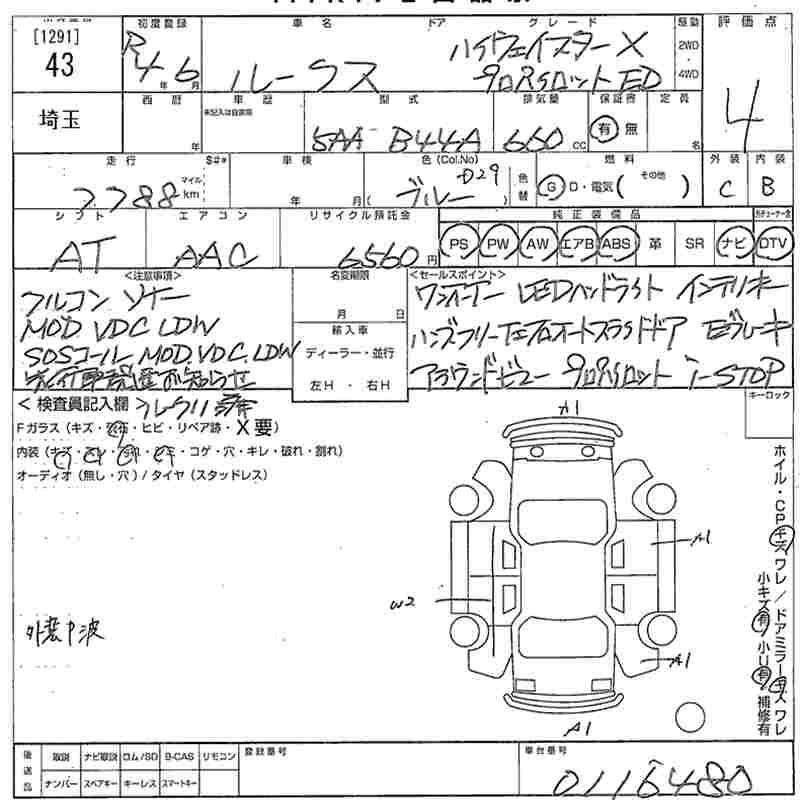 [1291] 初度登録 車名 ドア グレード 駆動 評価点
43 R4年6月 ルークス ハイウェイスターX 2WD
プロパイロットED 4WD
埼玉 西暦 車歴 型式 排気量 保証書 定員 4
年 未記入は自家用 5AA-B44A 660cc 有 無 名
走行 S#* 車検 色(Col.No) 燃料 外装 内装
7788 マイル km 年 月( ブルー ) 色替 G・D・電気( その他 ) C B
シフト エアコン リサイクル預託金 純正装備品
AT AAC 6560円 PS PW AW エアB ABS 革 SR ナビ DTV
<注意事項> 名変期限 <セールスポイント>
フルコン ソナー 月 日 ワンオーナー LEDヘッドライト インテリキー
MOD VDC LDW 輸入車 ハンズフリー左右オートスライドドア Eブレーキ
SOSコール MOD.VDC.LDW ディーラー・並行
先行車発進お知らせ 左H・右H アラウンドビュー プロパイロット i-STOP
<検査員記入欄> キーロック
Fガラス(キズ・飛石・ヒビ・リペア跡・X要)
内装(キズ・スレ・汚れ・シミ・コゲ・穴・キレ・破れ・割れ)
オーディオ(無し・穴)/タイヤ(スタッドレス)
A1
A1
W2
外装中波
A1
A1
ホイル・CPキズ ワレ/ドアミラーキズ ワレ
小キズ有 小U有 補修有
後送品 取説 ナビ取説 ロム/SD B-CAS リモコン 登録番号 車台番号
ナンバー スペアキー キーレス スマートキー 0116480